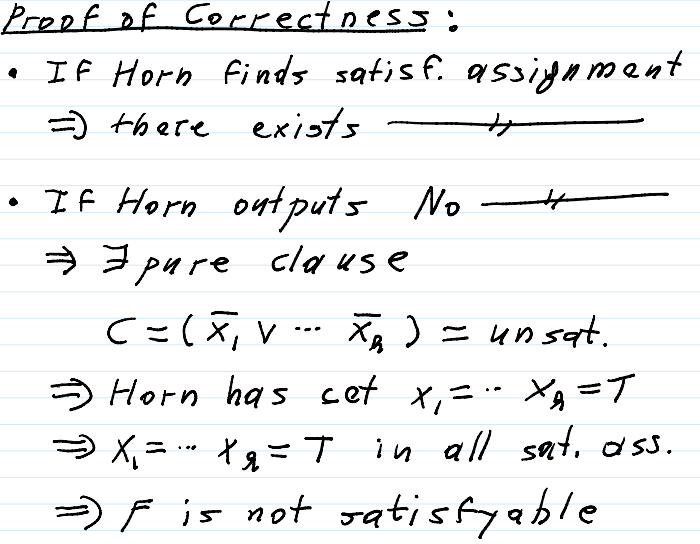 Proof of Correctness:
• If Horn finds satisf. assignment
⇒ there exists —〃—
• If Horn outputs No —〃—
⇒ ∃ pure clause
C = ( x̄₁ ∨ ··· x̄ₖ ) = unsat.
⇒ Horn has set x₁ = ·· xₖ = T
⇒ x₁ = ··· xₖ = T in all sat. ass.
⇒ F is not satisfyable